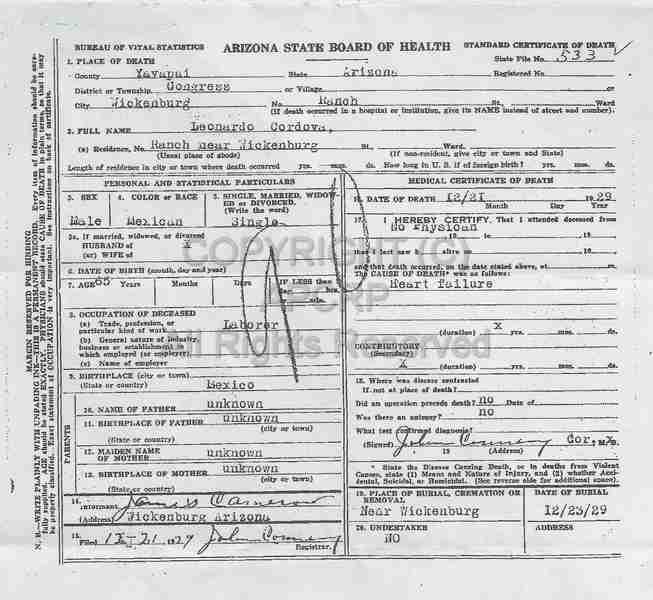 BUREAU OF VITAL STATISTICS ARIZONA STATE BOARD OF HEALTH STANDARD CERTIFICATE OF DEATH
1. PLACE OF DEATH State File No. 533
County Yavapai State Arizona Registered No.
District or Township Congress or Village or
City Wickenburg No. Ranch St., Ward
(If death occurred in a hospital or institution, give its NAME instead of street and number.)
2. FULL NAME Leonardo Cordova,
(a) Residence, No. Ranch near Wickenburg St., Ward.
(Usual place of abode) (If non-resident, give city or town and State)
Length of residence in city or town where death occurred yrs. mos. ds. How long in U. S. if of foreign birth? yrs. mos. ds.
PERSONAL AND STATISTICAL PARTICULARS
3. SEX 4. COLOR or RACE 5. SINGLE, MARRIED, WIDOW-
ED or DIVORCED.
(Write the word)
Male Mexican Single
5a. If married, widowed, or divorced
HUSBAND of X
(or) WIFE of
6. DATE OF BIRTH (month, day and year)
7. AGE 65 Years Months Days IF LESS than
day hrs.
or min.
8. OCCUPATION OF DECEASED
(a) Trade, profession, or
particular kind of work Laborer
(b) General nature of industry,
business or establishment in
which employed (or employer)
(c) Name of employer
9. BIRTHPLACE (city or town)
(State or country) Mexico
PARENTS
10. NAME OF FATHER unknown
11. BIRTHPLACE OF FATHER unknown
(city or town)
(State or country)
12. MAIDEN NAME
OF MOTHER unknown
13. BIRTHPLACE OF MOTHER unknown
(city or town)
(State or country)
14. Informant James B Cameron
(Address) Wickenburg Arizona
15. Filed 12-21, 1929 Registrar.
MEDICAL CERTIFICATE OF DEATH
16. DATE OF DEATH 12/21 1929
Month Day Year
17. I HEREBY CERTIFY, That I attended deceased from
No Physican
, 19 to , 19
that I last saw h alive on , 19
and that death occurred, on the date stated above, at m.
The CAUSE OF DEATH* was as follows:
Heart failure
X
(duration) yrs. mos. ds.
CONTRIBUTORY
(Secondary) X
(duration) yrs. mos. ds.
18. Where was disease contracted
if not at place of death?
Did an operation precede death? no Date of
Was there an autopsy? no
What test confirmed diagnosis?
(Signed) Cor, M.D.
, 19 (Address)
* State the Disease Causing Death, or in deaths from Violent
Causes, state (1) Means and Nature of Injury, and (2) whether Acci-
dental, Suicidal, or Homicidal. (See reverse side for additional space).
19. PLACE OF BURIAL, CREMATION OR
REMOVAL DATE OF BURIAL
Near Wickenburg 12/23/29
20. UNDERTAKER ADDRESS
NO
MARGIN RESERVED FOR BINDING
N. B.—WRITE PLAINLY WITH UNFADING INK—THIS IS A PERMANENT RECORD. Every item of information should be care-
fully supplied. AGE should be stated EXACTLY. PHYSICIANS should state CAUSE OF DEATH in plain terms, so that it may
be properly classified. Exact statement of OCCUPATION is very important. See instructions on back of certificate.
COPYRIGHT (C)
APCRP
All Rights Reserved